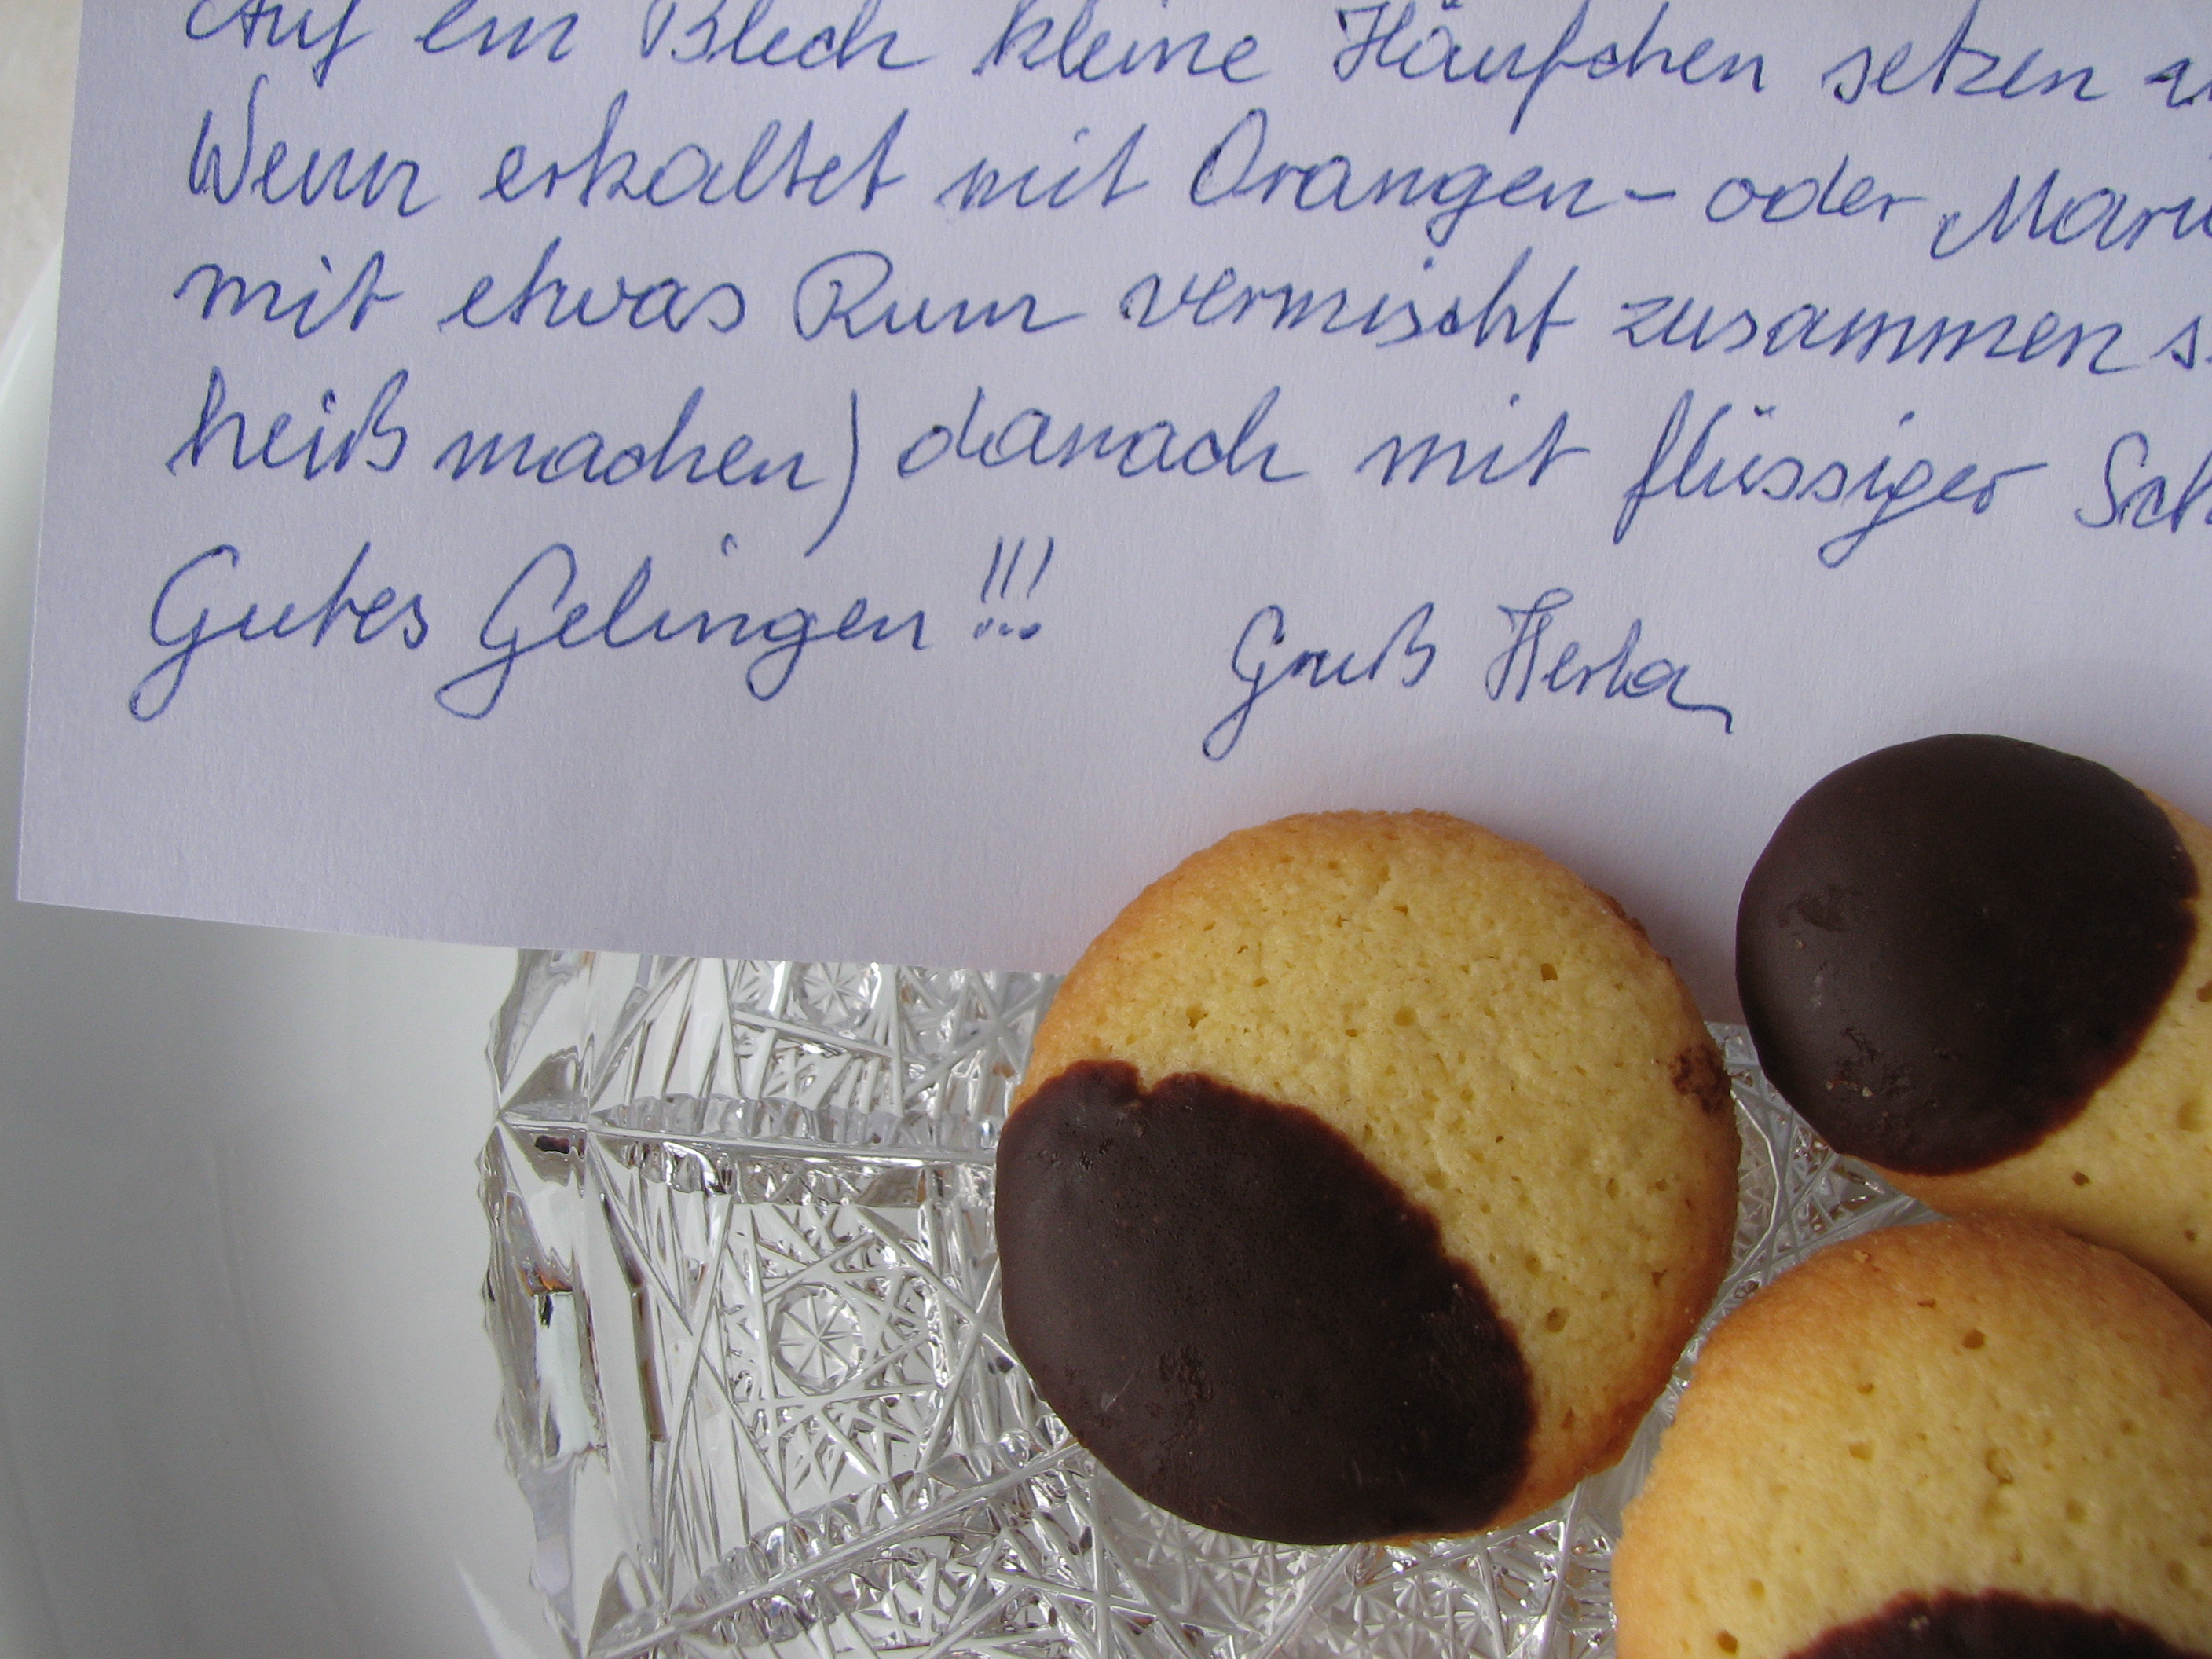 Auf ein Blech kleine Häufchen setzen
Wenn erkaltet mit Orangen- oder
mit etwas Rum vermischt zusammen
heiß machen) danach mit flüssiger
Gutes Gelingen!!!
Gruß Herta